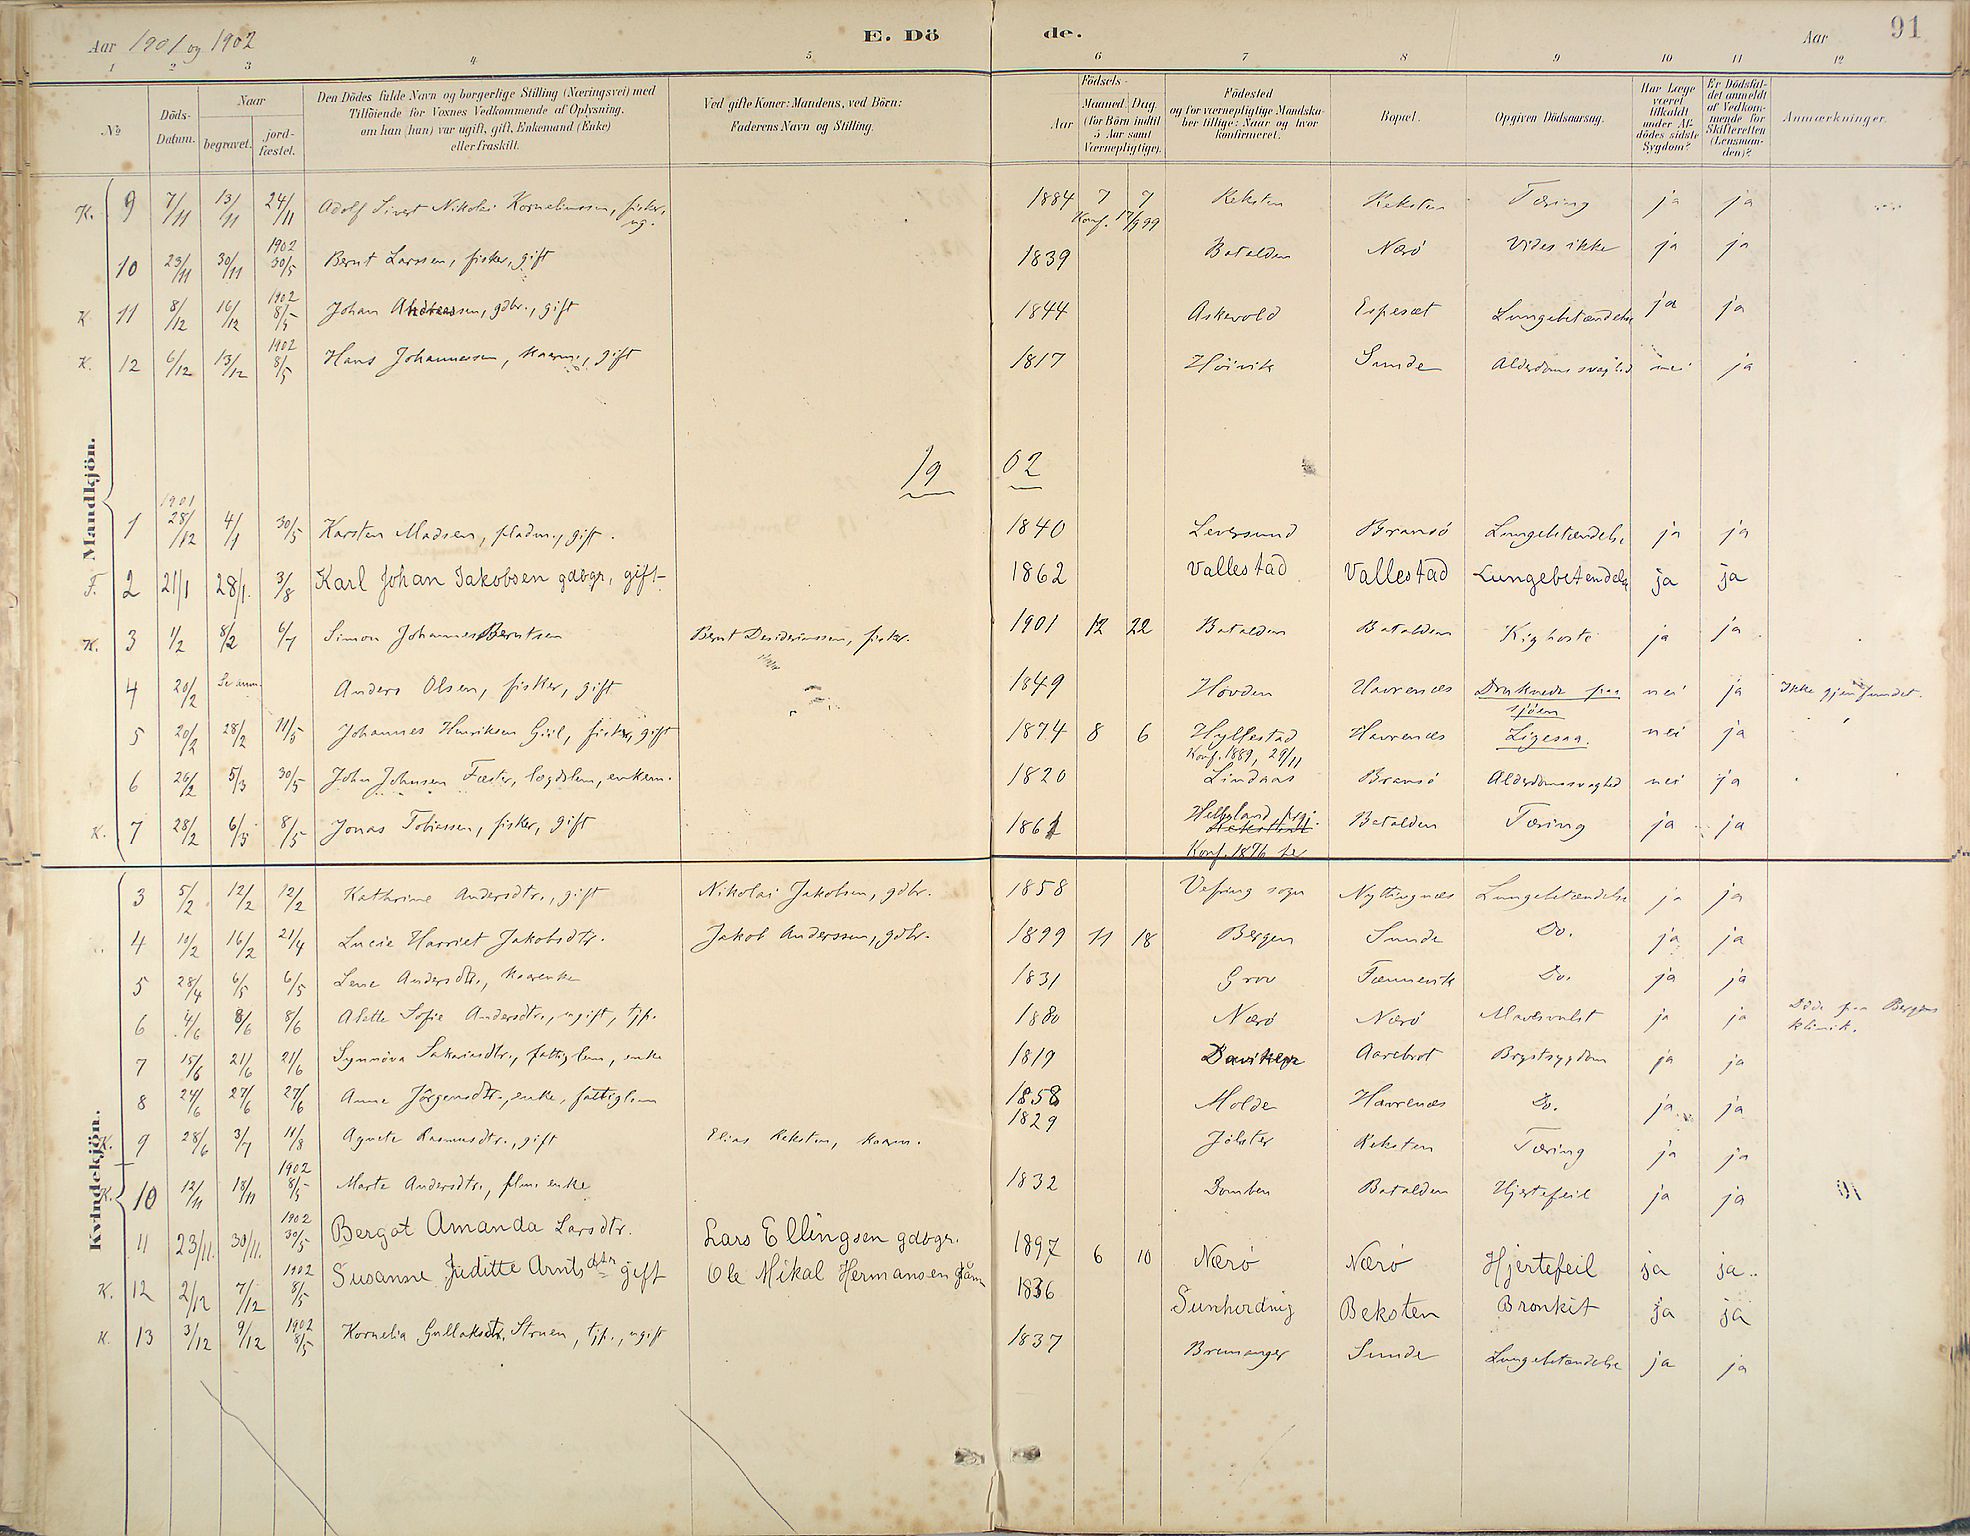 Aar 1901 og 1902 E. Dö de. Aar 91
1 2 3 4 5 6 7 8 9 10 11 12
№ Döds-Datum. Naar begravet. jord-fæstet. Den Dödes fulde Navn og borgerlige Stilling (Næringsvei) med Tilföiende for Voxnes Vedkommende af Oplysning. om han (hun) var ugift, gift, Enkemand (Enke) eller fraskilt. Ved gifte Koner: Mandens, ved Börn: Faderens Navn og Stilling. Aar Födsels- Maaned Dag. (for Börn indtil 5 Aar samt Værnepligtige). Födested og for værnepligtige Mandskaber tillige: Naar og hvor konfirmeret. Bopæl. Opgiven Dödsaarsag. Har Læge været tilkaldt under Afdödes sidste Sygdom? Er Dödsfaldet anmeldt af Vedkommende for Skifteretten (Lensmanden)? Anmærkninger.
Mandkjön.
K. 9 7/11 13/11 24/11 Adolf Sivert Nikolai Korneliussen, fisker, ug. 1884 7 9 Reksten Reksten Tæring ja ja
Konf. 17/9 99
10 23/11 30/11 1902 30/5 Bernt Larssen, fisker, gift 1839 Batalden Nærö Vides ikke ja ja
K. 11 8/12 16/12 1902 8/5 Johan Andreassen, gdbr., gift 1844 Askevold Espesæt Lungebetændelse ja ja
K. 12 6/12 13/12 1902 8/5 Hans Johannessen, kaarm., gift 1817 Höivik Sunde Alderdomssvaghed nei ja
19 02
1 1901 28/12 4/1 30/5 Karsten Madsen, pladm., gift. 1840 Leversund Bransö Lungebetændelse ja ja
F. 2 21/1 28/1. 3/8 Karl Johan Jakobsen gdbgr, gift 1862 Vallestad Vallestad Lungebetendelse ja ja
K. 3 1/2 8/2 6/7 Simon Johannes Berntsen Bernt Desideriussen, fisker. 1901 12 22 Batalden Batalden Kighoste ja ja
4 20/2 Se anm. Anders Olsen, fisker, gift 1849 Hovden Havrenæs Druknede paa sjöen nei ja Ikke gjenfundet.
5 20/2 28/2 11/5 Johannes Henriksen Giil, fisker, gift 1874 8 6 Hyllestad Havrenæs Ligesaa. nei ja
Konf. 1889, 29/11
6 26/2 5/3 30/5 John Johnsen Fæster, lægdslem, enkem. 1820 Lindaas Bransö Alderdomssvaghed nei ja
K. 7 28/2 6/3 8/5 Jonas Tobiassen, fisker, gift 1861 Helgeland prgj. Batalden Tæring ja ja
Konf. 1876
Kvindekjön.
3 5/2 12/2 12/2 Kathrine Andersdtr., gift Nikolai Jakobsen, gdbr. 1858 Vefring sogn Nyttingnæs Lungebetændelse ja ja
4 10/2 16/2 21/4 Lucie Harriet Jakobsdtr. Jakob Anderssen, gdbr. 1899 11 18 Bergen Sunde Do. ja ja
5 28/4 6/5 6/5 Lene Andersdtr., kaarenke 1831 Grov Tænnevik Do. ja ja
6 4/6 8/6 8/6 Alette Sofie Andersdtr., ugift, tjp. 1880 Nærö Nærö Mavesvulst ja ja Döde paa Bergens klinik.
7 15/6 21/6 21/6 Synnöva Sakariasdtr., fattiglem, enke 1819 Daviken Aarebrot Brystsygdom ja ja
8 24/6 27/6 27/6 Anne Jörgensdtr., enke, fattiglem 1858 Molde Havrenæs Do. ja ja
K. 9 28/6 3/7 11/8 Agnete Rasmusdtr., gift Elias Reksten, kaarm. 1829 Jölster Reksten Tæring ja ja
K. 10 12/11 18/11 1902 8/5 Marte Andersdtr., flm. enke 1832 Domben Batalden Hjertefeil ja ja
11 23/11. 30/11. 1902 30/5 Bergot Amanda Larsdtr. Lars Ellingsen gdbgr. 1897 6 10 Nærö Nærö Hjertefeil ja ja
K. 12 2/12 7/12 1902 8/5 Susanne Juditte Arntsdtr gift Ole Mikal Hermansen 1836 Sunhordvig Reksten Bronkit ja ja
K. 13 3/12 9/12 1902 8/5 Kornelia Gullaksdtr. Struen, tjp., ugift 1837 Bremanger Sunde Lungebetændelse ja ja